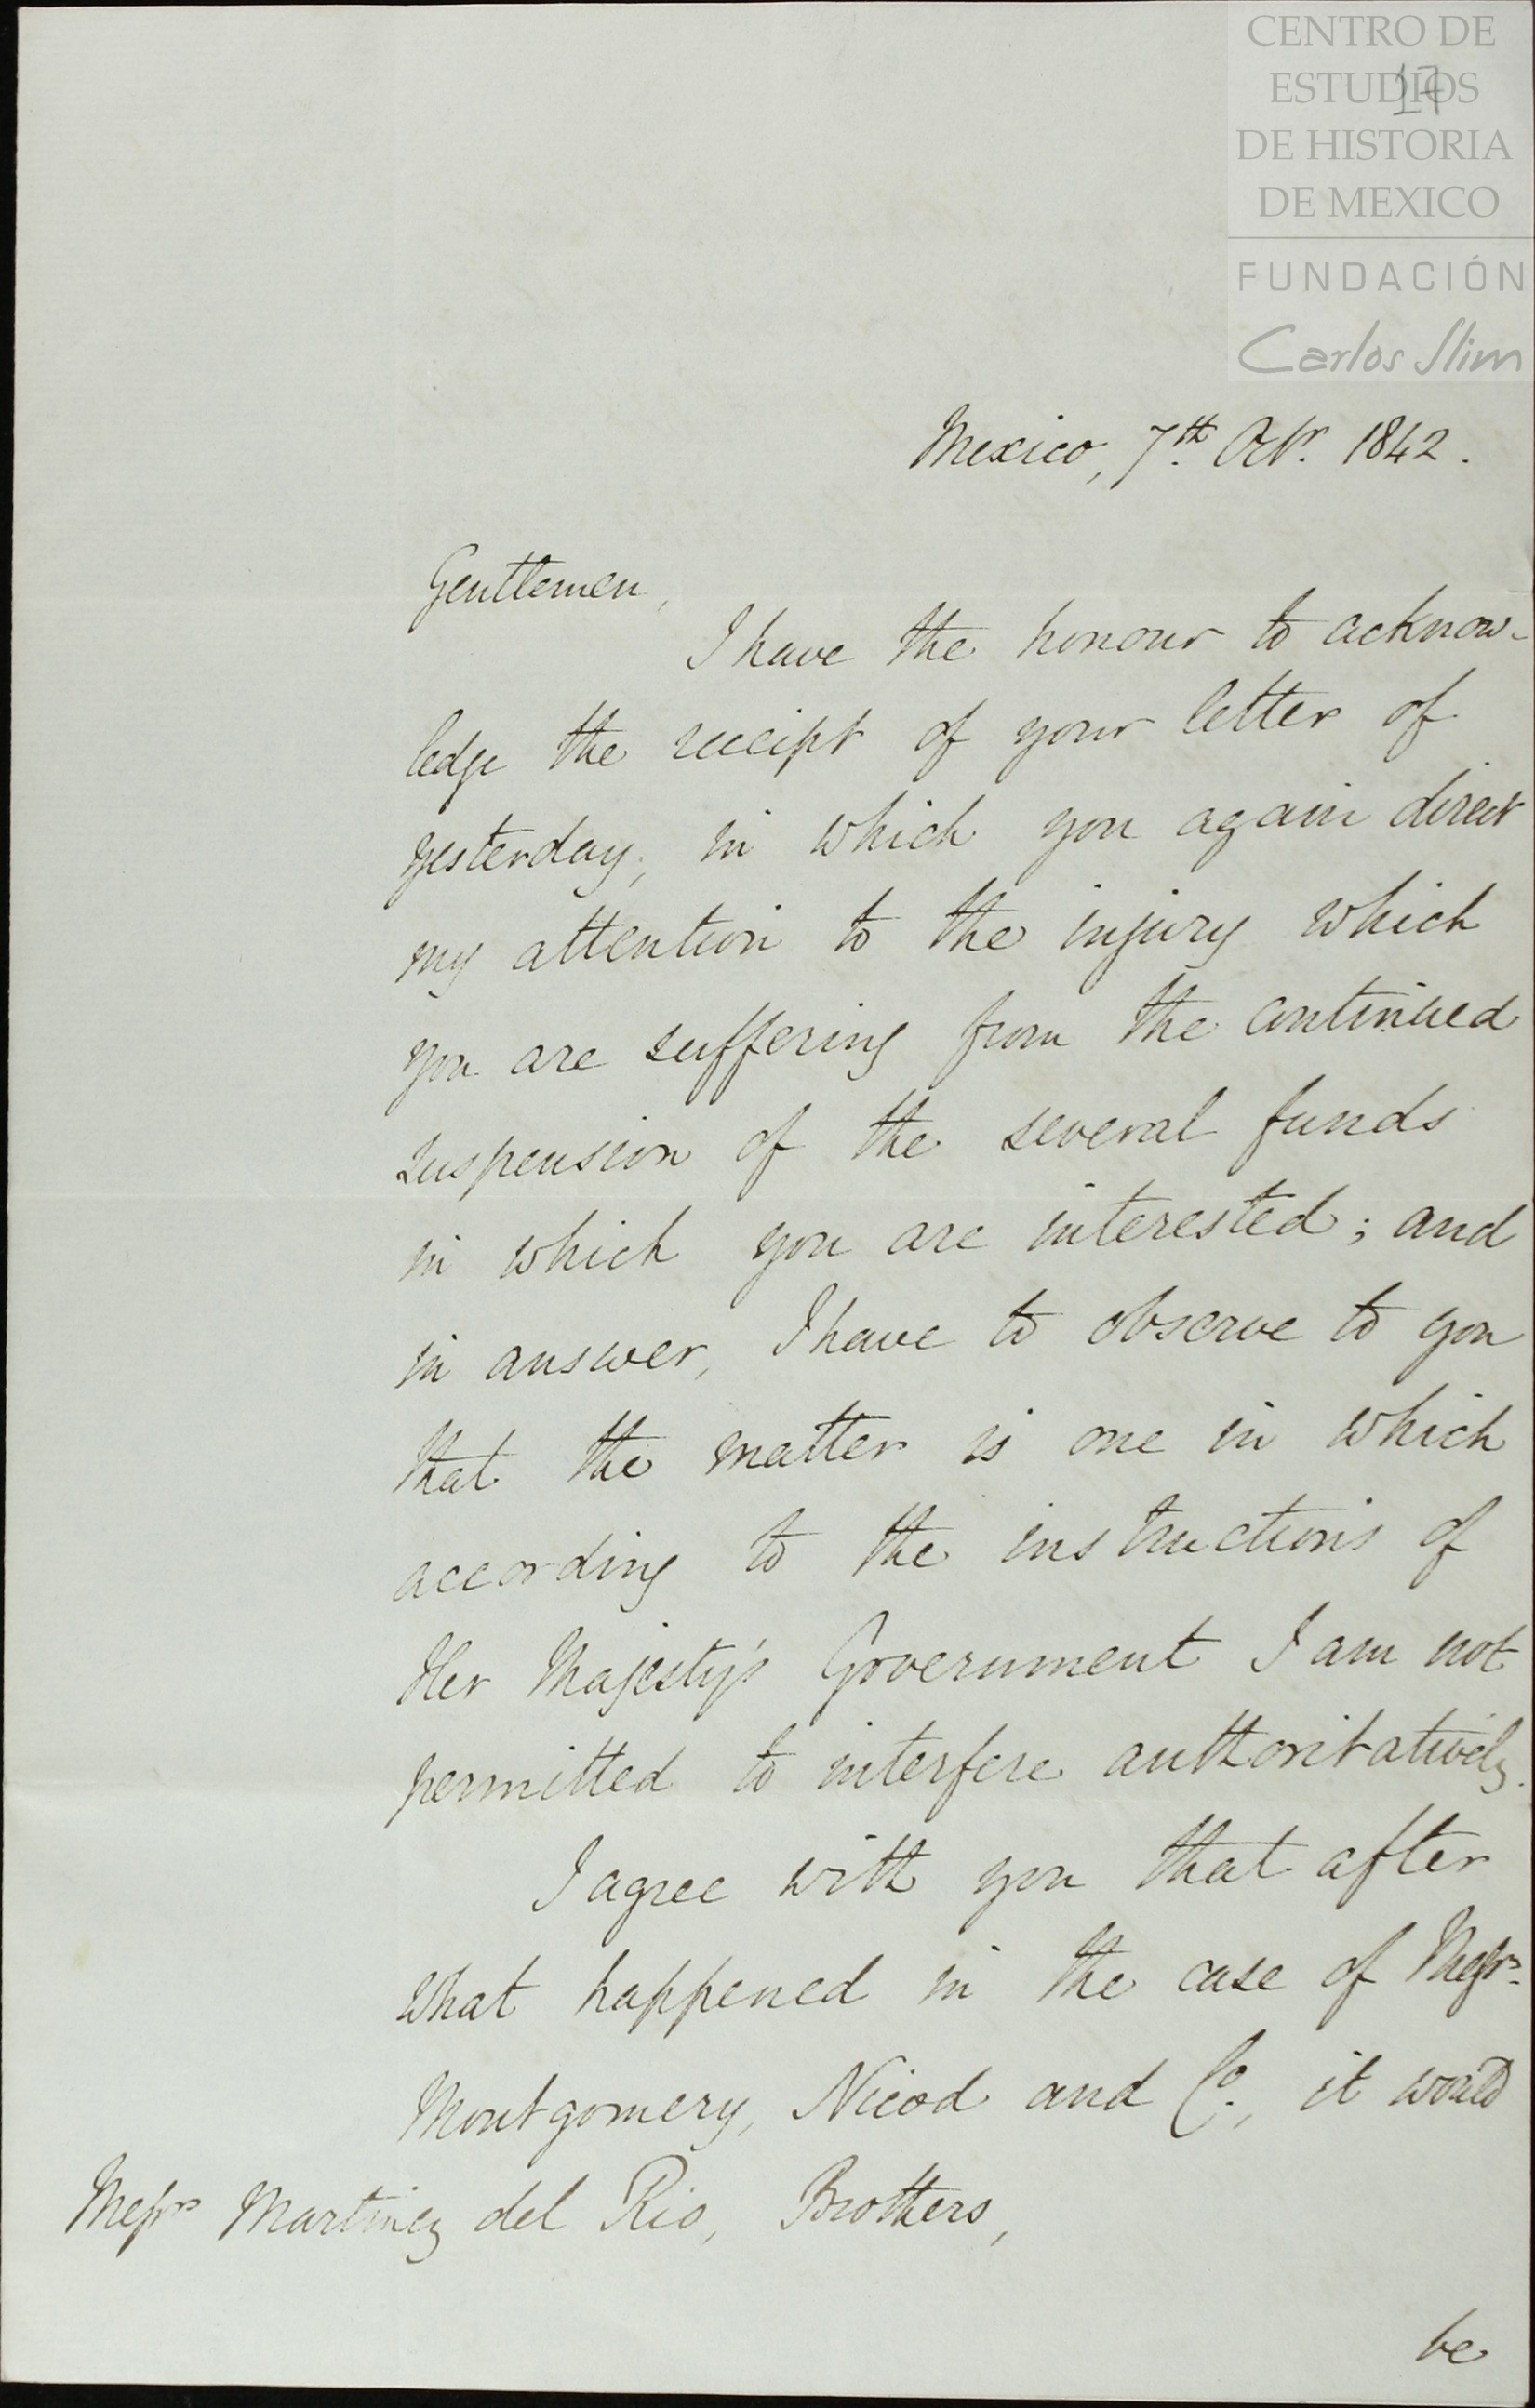 CENTRO DE
ESTUDIOS
DE HISTORIA
DE MEXICO
FUNDACIÓN
Carlos Slim
17
Mexico, 7th Octr. 1842.
Gentlemen,
I have the honour to acknow-
ledge the receipt of your letter of
yesterday, in which you again direct
my attention to the injury which
you are suffering from the continued
suspension of the several funds
in which you are interested; and
in answer, I have to observe to you
that the matter is one in which
according to the instructions of
Her Majesty's Government I am not
permitted to interfere authoritatively.
I agree with you that after
what happened in the case of Messrs.
Montgomery, Nicod and Co., it would
Messrs Martinez del Rio, Brothers,
be